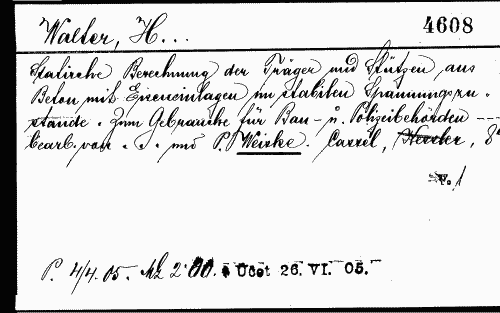 Walter, H... 4608
Statische Berechnung der Träger und Stützen aus
Beton mit Eiseneinlagen im stabilen Spannungszu-
stande. Zum Gebrauche für Bau- u. Polizeibehörden ---
bearb. von . . . und P. Weiske. Cassel, Kessler, 8°
P. 4/4. 05. Mk 2.00. Ucst 26. VI. 05.